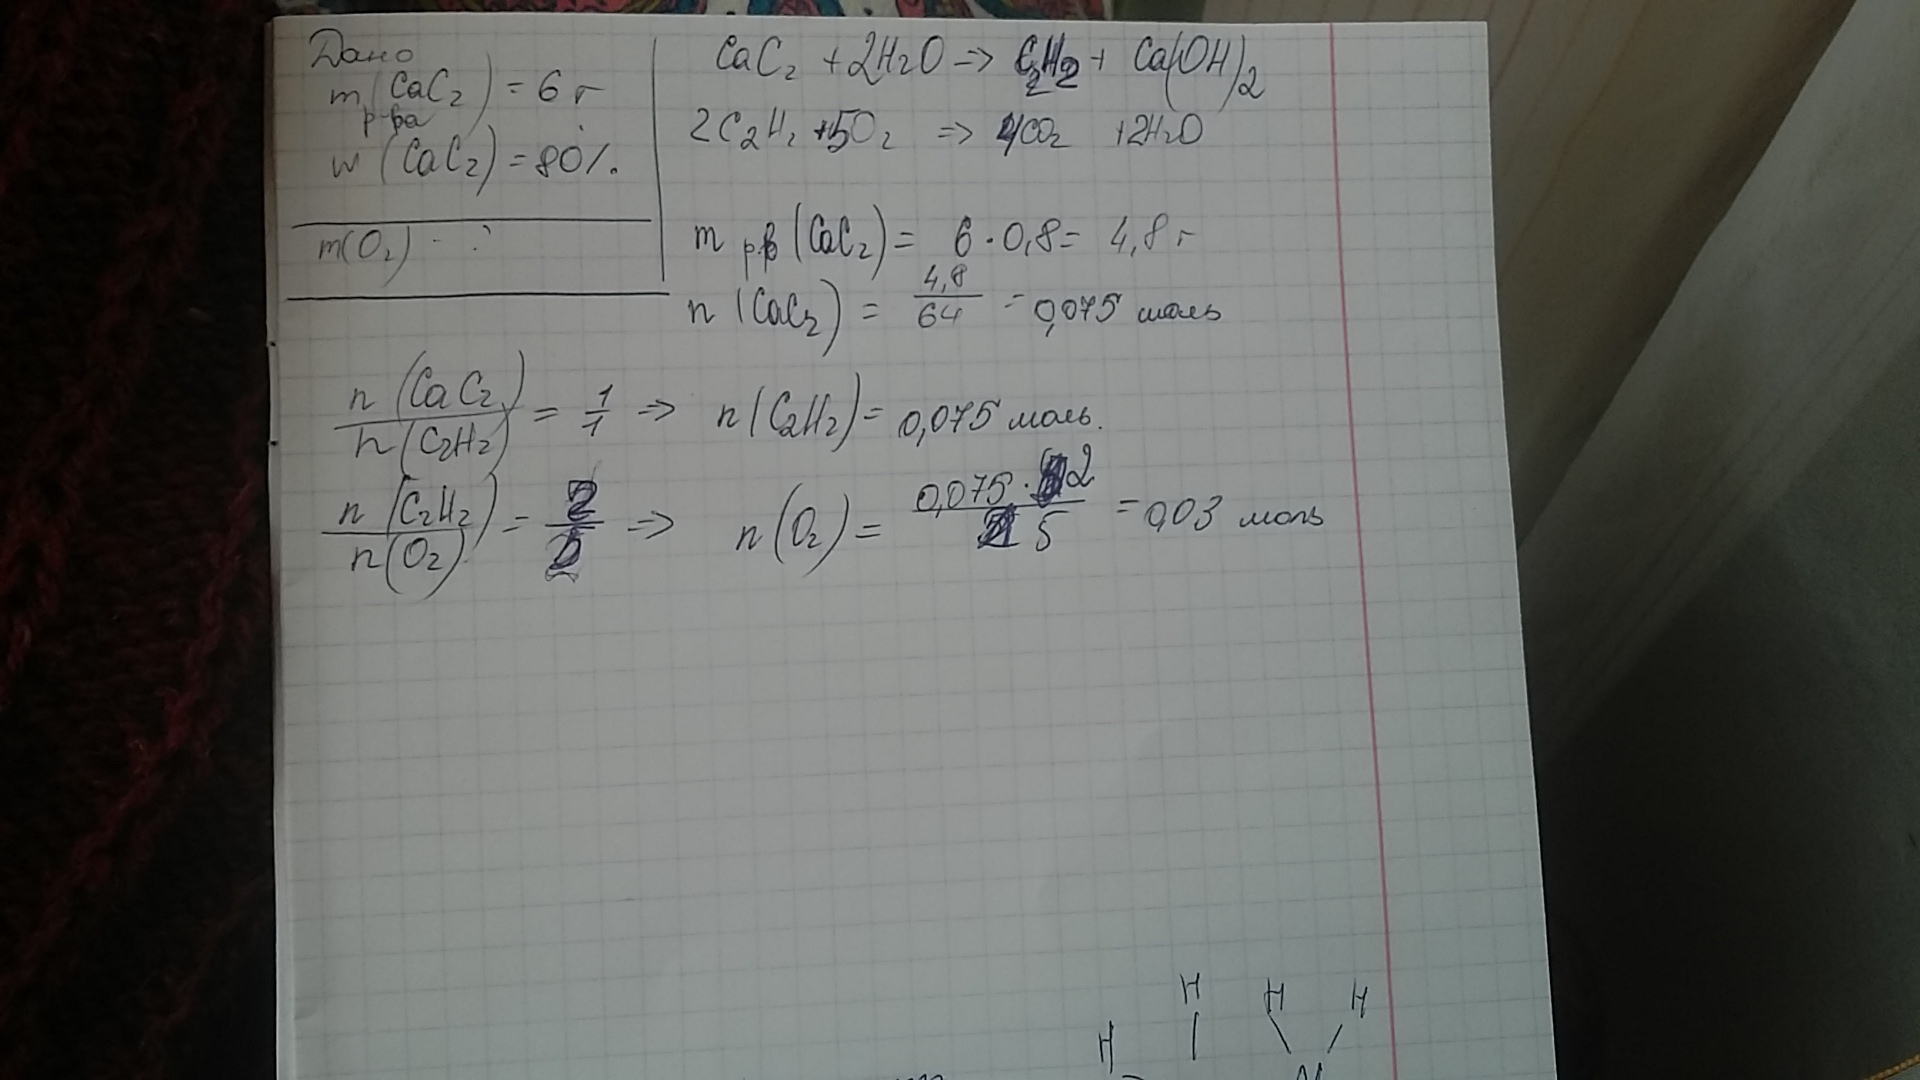 Дано
m р-ра (CaC₂) = 6 г
w (CaC₂) = 80%.
m(O₂) - ?
CaC₂ + 2H₂O => C₂H₂ + Ca(OH)₂
2C₂H₂ + 5O₂ => 4CO₂ + 2H₂O
m р.в (CaC₂) = 6 · 0,8 = 4,8 г
n (CaC₂) = 4,8/64 = 0,075 моль
n (CaC₂)/n (C₂H₂) = 1/1 => n (C₂H₂) = 0,075 моль.
n (C₂H₂)/n (O₂) = 2/2 => n (O₂) = 0,075 · 2/5 = 0,03 моль
H H H
H